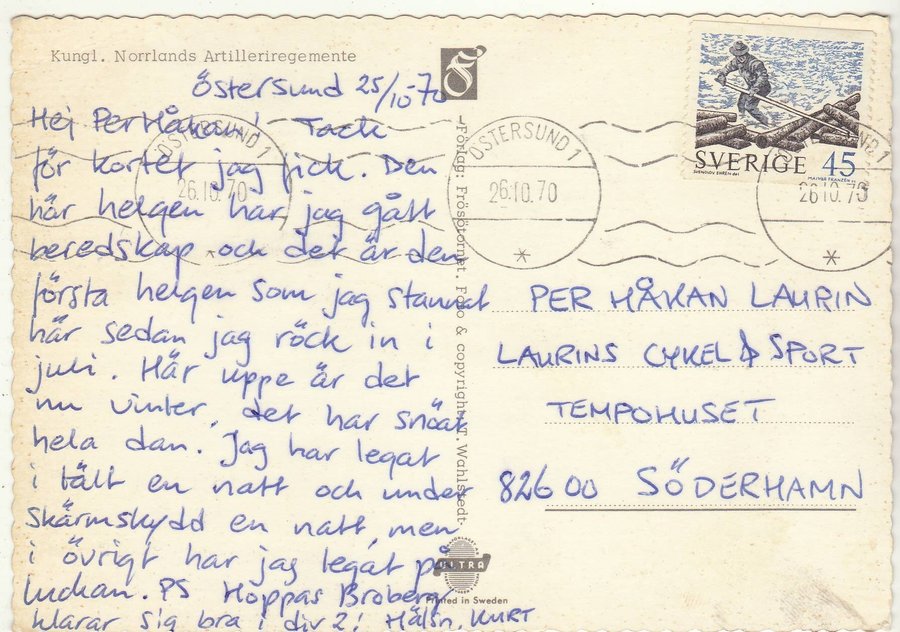 Kungl. Norrlands Artilleriregemente
Östersund 25/10-70
Hej Per Håkan! Tack
för kortet jag fick. Den
här helgen har jag gått
beredskap och det är den
första helgen som jag stannat
här sedan jag röck in i
juli. Här uppe är det
nu vinter, det har snöat
hela dan. Jag har legat
i tält en natt och under
skärmskydd en natt, men
i övrigt har jag legat på
luckan. PS Hoppas Broberg
klarar sig bra i div 2! Hälsn. KURT
Förlag: Frösötornet. Foto & copyright T. Wahlstedt.
ULTRA
Printed in Sweden
ÖSTERSUND 1
26.10.70
ÖSTERSUND 1
26.10.70
26.10.70
SVERIGE 45
PER HÅKAN LAURIN
LAURINS CYKEL & SPORT
TEMPOHUSET
82600 SÖDERHAMN